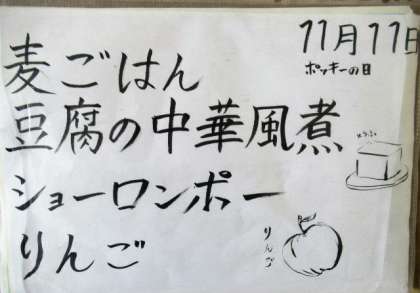 11月11日
ポッキーの日
麦ごはん
豆腐の中華風煮
ショーロンポー
りんご
とうふ
りんご